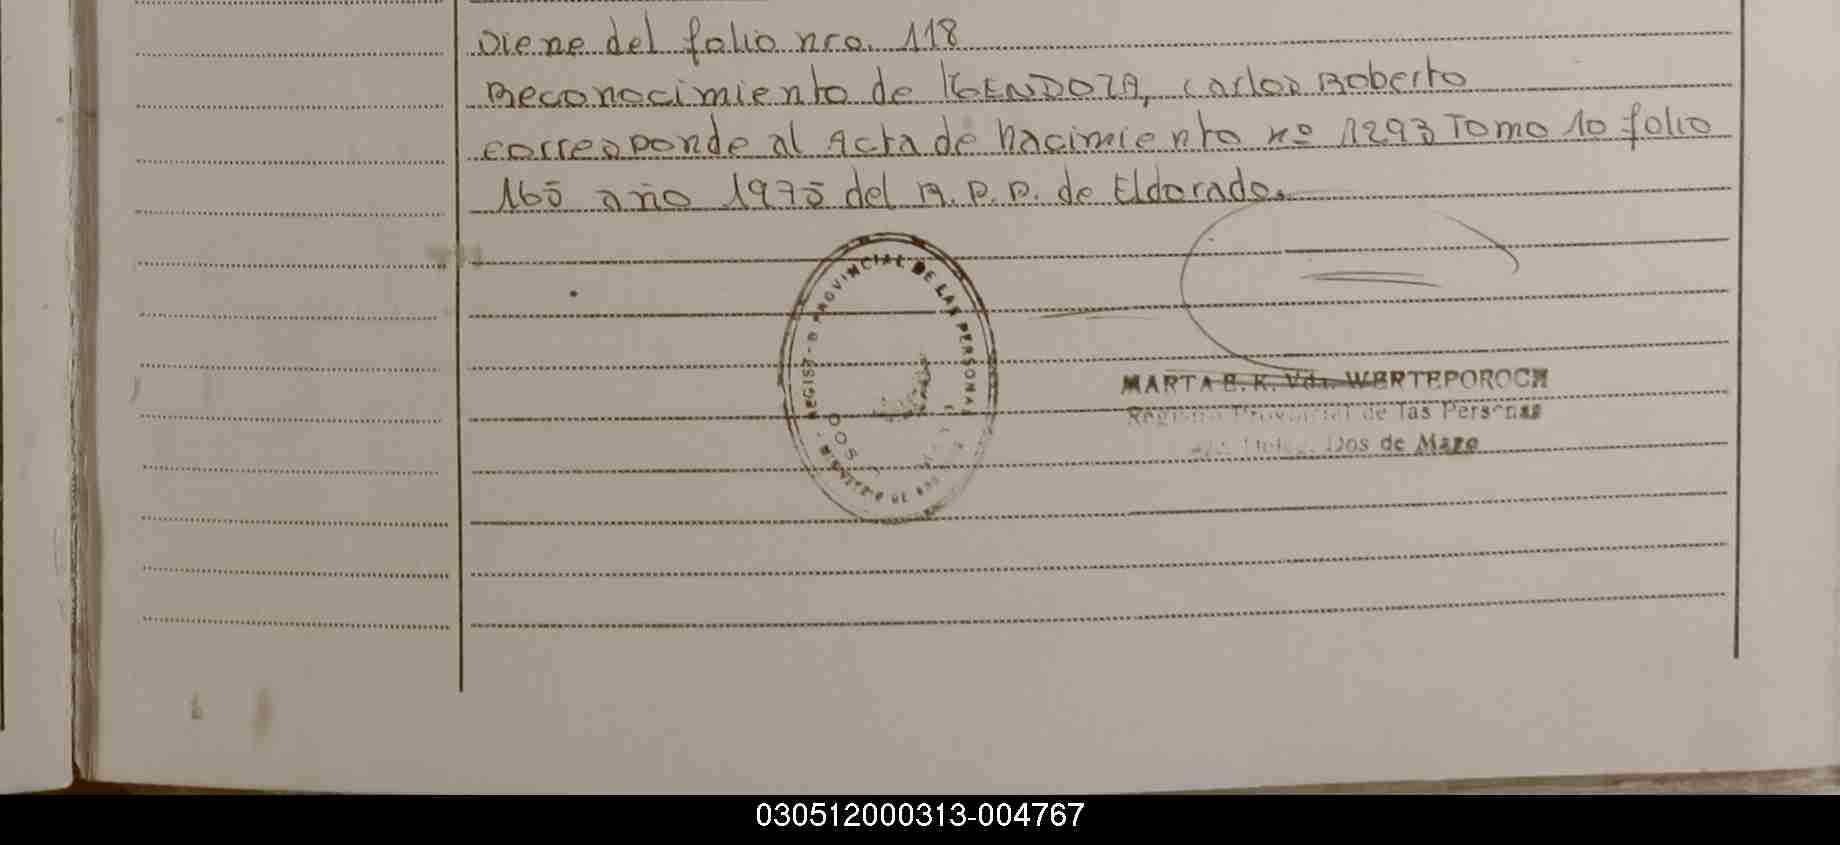 Viene del folio nro. 118
Reconocimiento de MENDOZA, Carlos Roberto
corresponde al Acta de nacimiento nº 1293 Tomo 10 folio
165 año 1975 del R.P.P. de Eldorado.
REGISTRO PROVINCIAL DE LAS PERSONAS
DOS
MARTA E. K. Vda. WERTEPOROCH
Registro Provincial de las Personas
Dos de Mayo
030512000313-004767